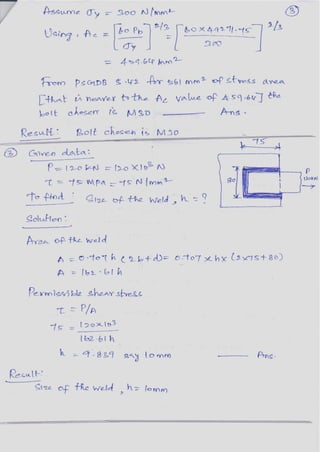 ③
Assume σy = 200 N/mm²
Using, Ac = [60 Pb / σy]^2/3 = [60 X 49271.75 / 200]^2/3
= 459.64 mm²
From PSGDB 5.42 for 561 mm² of stress area
[that is nearer to the Ac value of 459.64] the
bolt chosen is M30 —— Ans.
Result: Bolt chosen is M30
② Given data:
P = 120 kN = 120 X10³ N
τ = 75 MPa = 75 N/mm²
To find : Size of the weld, h = ?
75
80
P
120kN
Solution:
Area of the weld
A = 0.707 h (2b+d) = 0.707 x h x (2x75+80)
A = 162.61 h
Permissible shear stress
τ = P/A
75 = 120x10³ / 162.61 h
h = 9.839 say 10mm —— Ans.
Result:
Size of the weld, h = 10mm